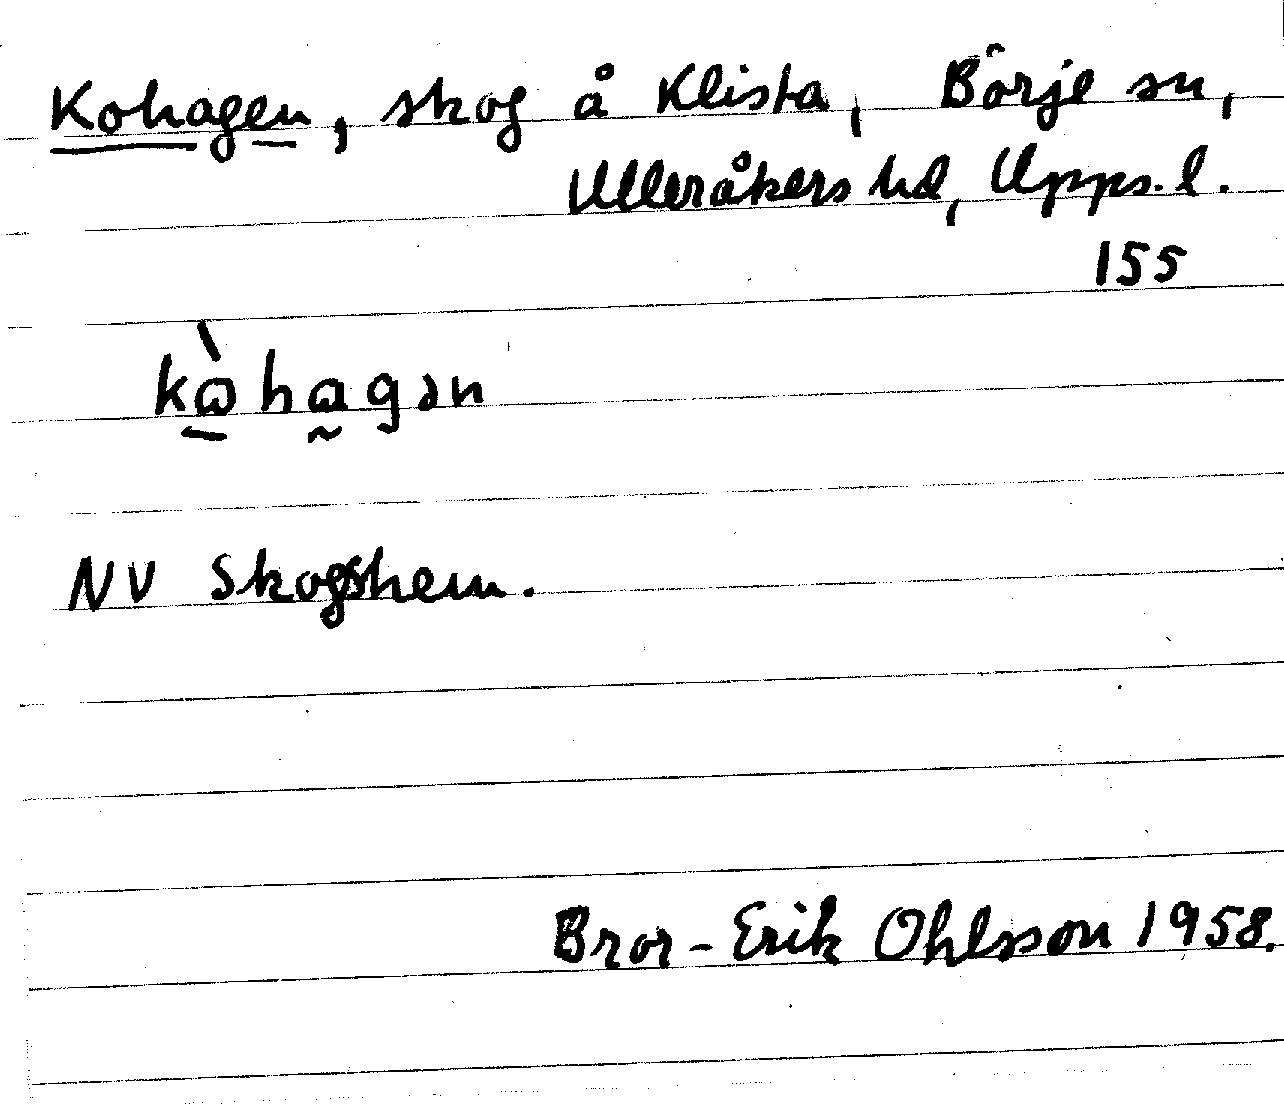 Kohagen, skog å Klista, Börje sn,
Ulleråkers hd, Upps. l.
155
kòhagən
NV Skogshem.
Bror-Erik Ohlsson 1958.